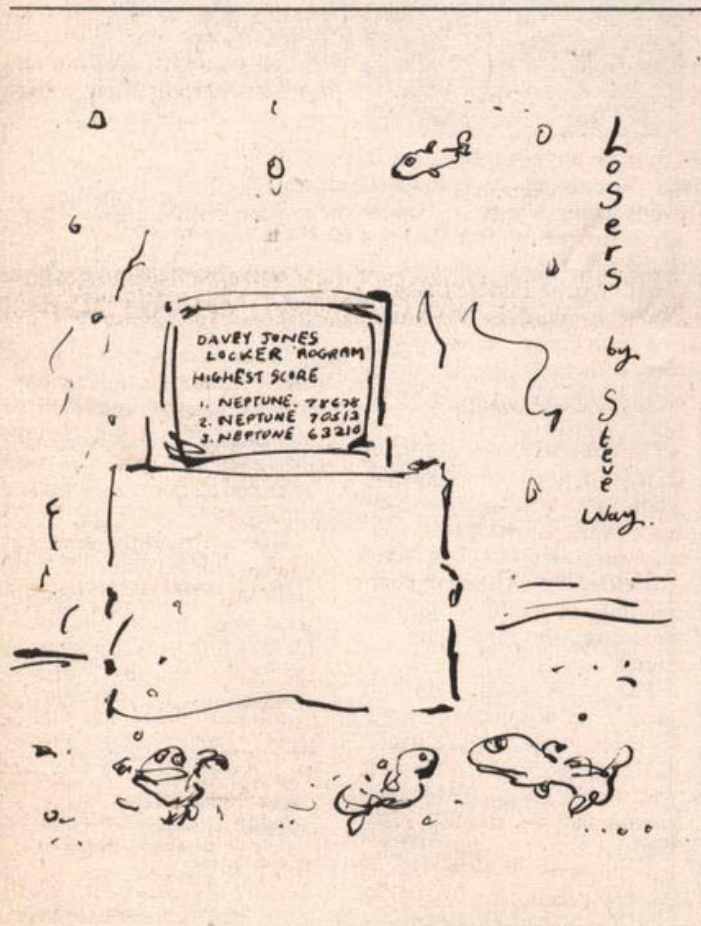 DAVEY JONES
LOCKER 'ROGRAM
HIGHEST SCORE
1. NEPTUNE. 78678
2. NEPTUNE 70513
3. NEPTUNE 63210
Losers
by
Steve
Way.